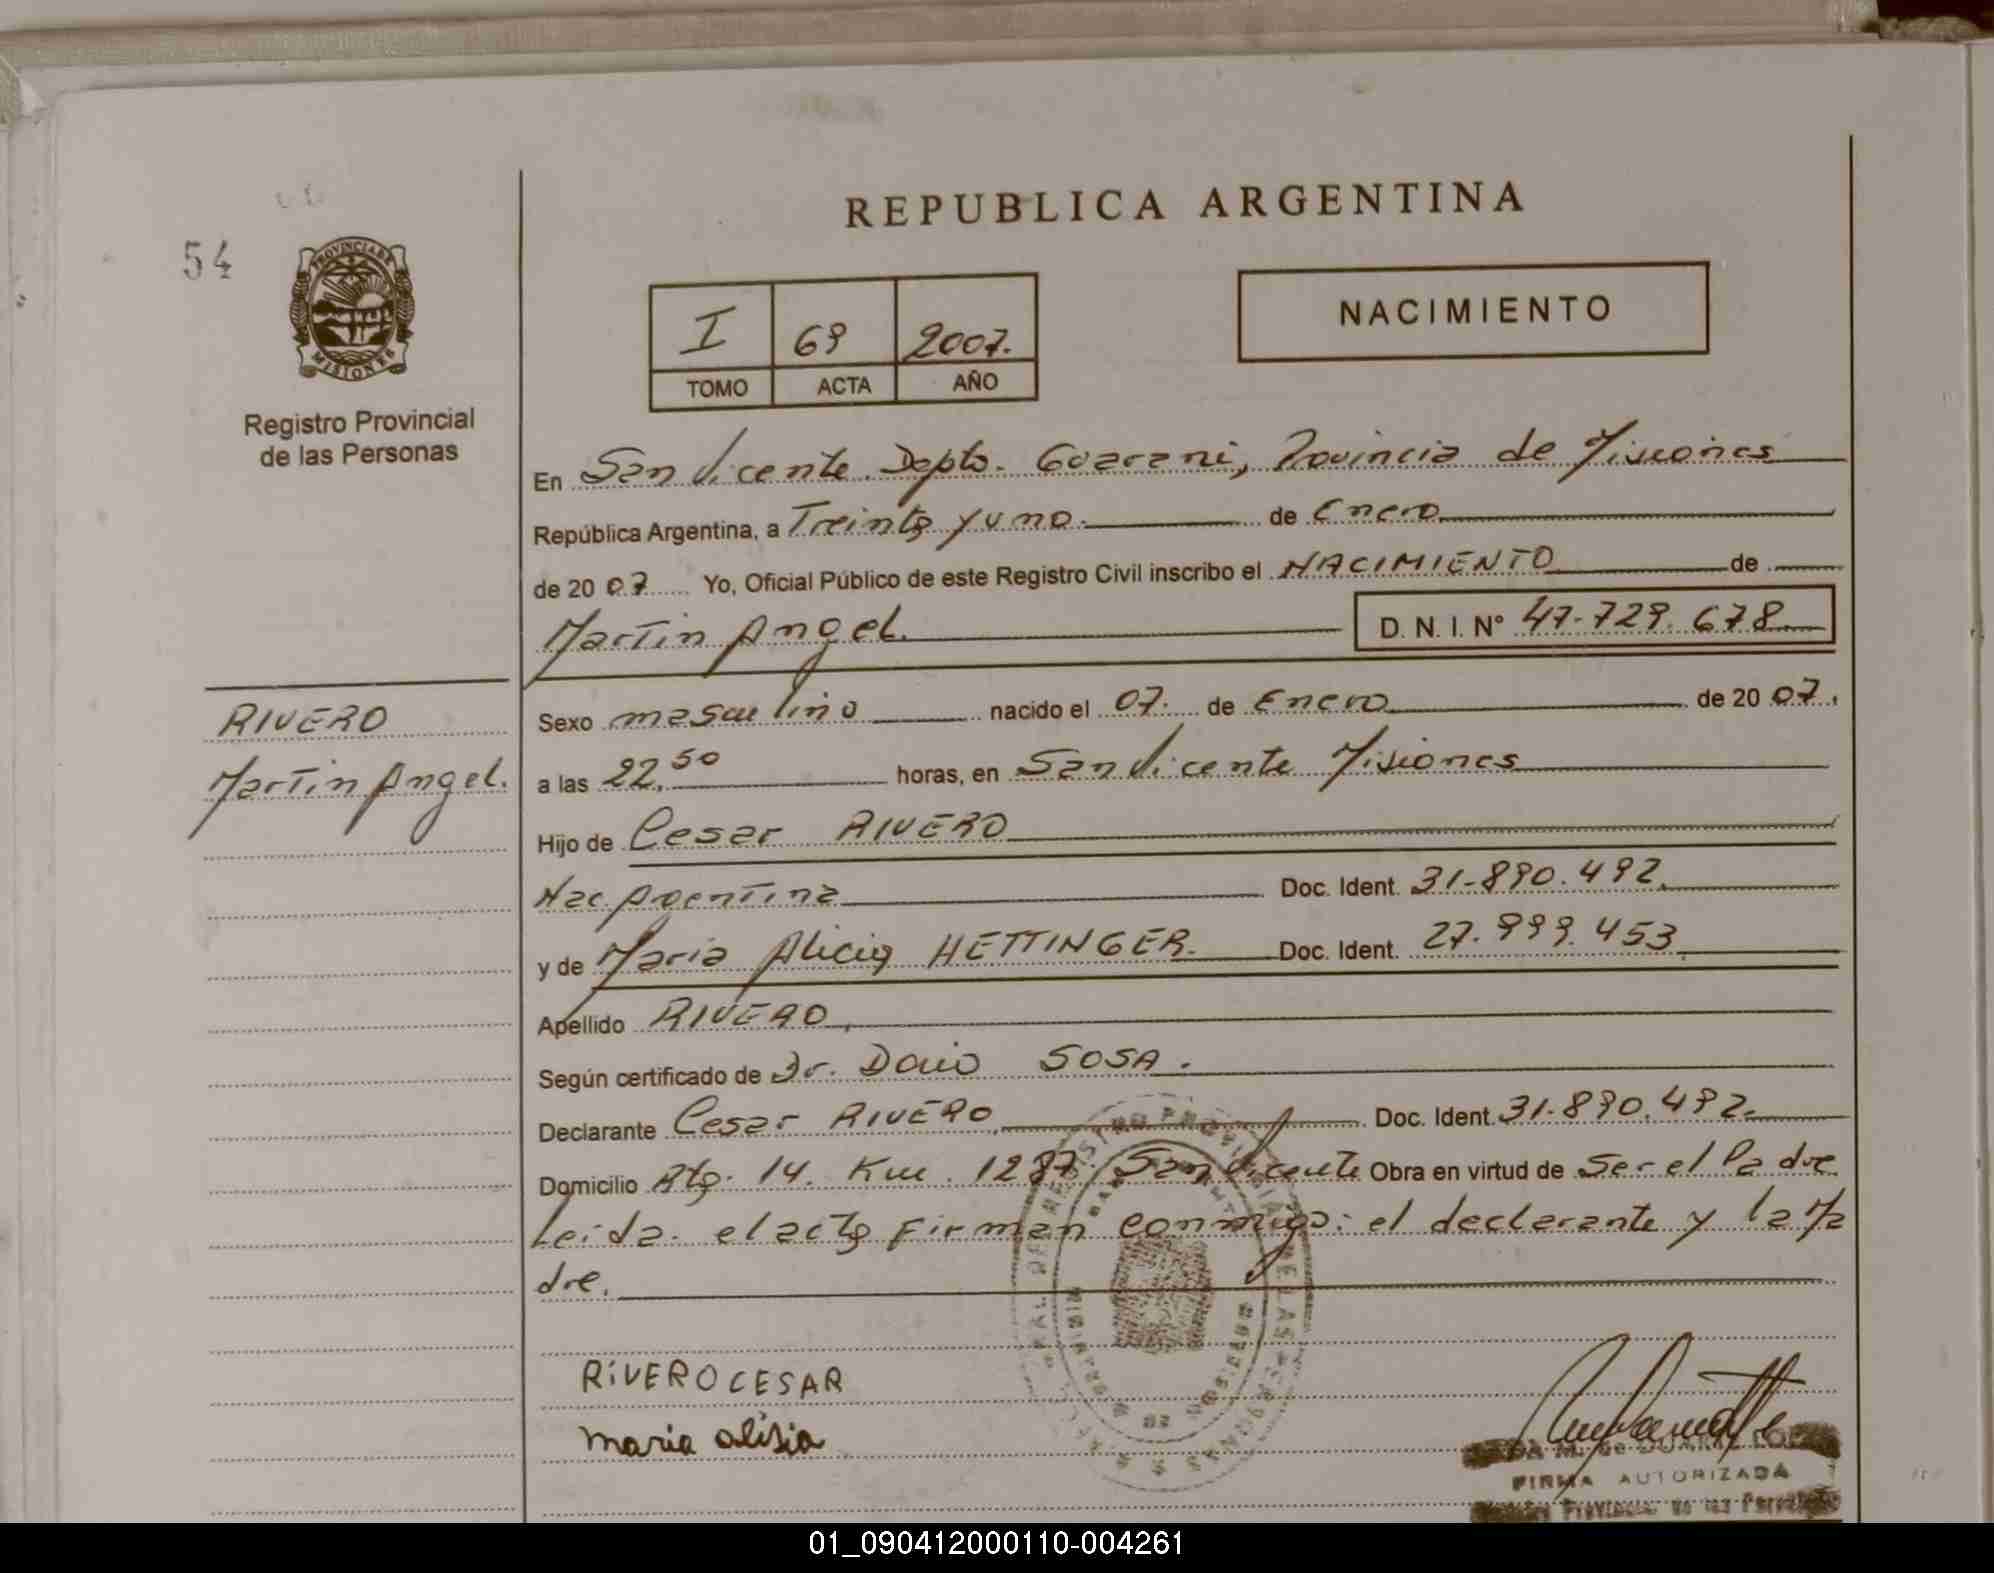 54
PROVINCIA DE
MISIONES
Registro Provincial
de las Personas
REPUBLICA ARGENTINA
I 69 2007.
TOMO ACTA AÑO
NACIMIENTO
En San Vicente Depto. Guarani, Provincia de Misiones
República Argentina, a Treinta y uno. de Enero
de 2007 Yo, Oficial Público de este Registro Civil inscribo el NACIMIENTO de
Martin Angel. D. N. I. N° 47-729.678
RIVERO
Martin Angel.
Sexo masculino nacido el 07. de Enero de 2007.
a las 22,50 horas, en San Vicente Misiones
Hijo de Cesar RIVERO
Nac. Argentina Doc. Ident. 31-890.492
y de Maria Alicia HETTINGER. Doc. Ident. 27.999.453
Apellido RIVERO,
Según certificado de Dr. Dario SOSA.
Declarante Cesar RIVERO. Doc. Ident. 31-890.492.
Domicilio Rta. 14. Km. 1287. San Vicente Obra en virtud de Ser el Padre
Leida. el acta firman conmigo: el declarante y la Ma
dre.
RiVERO CESAR
maria alisia
FIRMA AUTORIZADA
01_090412000110-004261